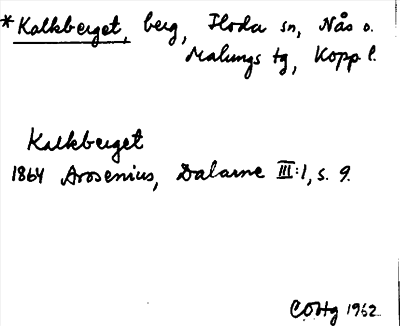 *Kalkberget, berg, Floda sn, Nås o.
Malungs tg, Kopp l.
Kalkberget
1864 Arosenius, Dalarne III:1, s. 9.
1962